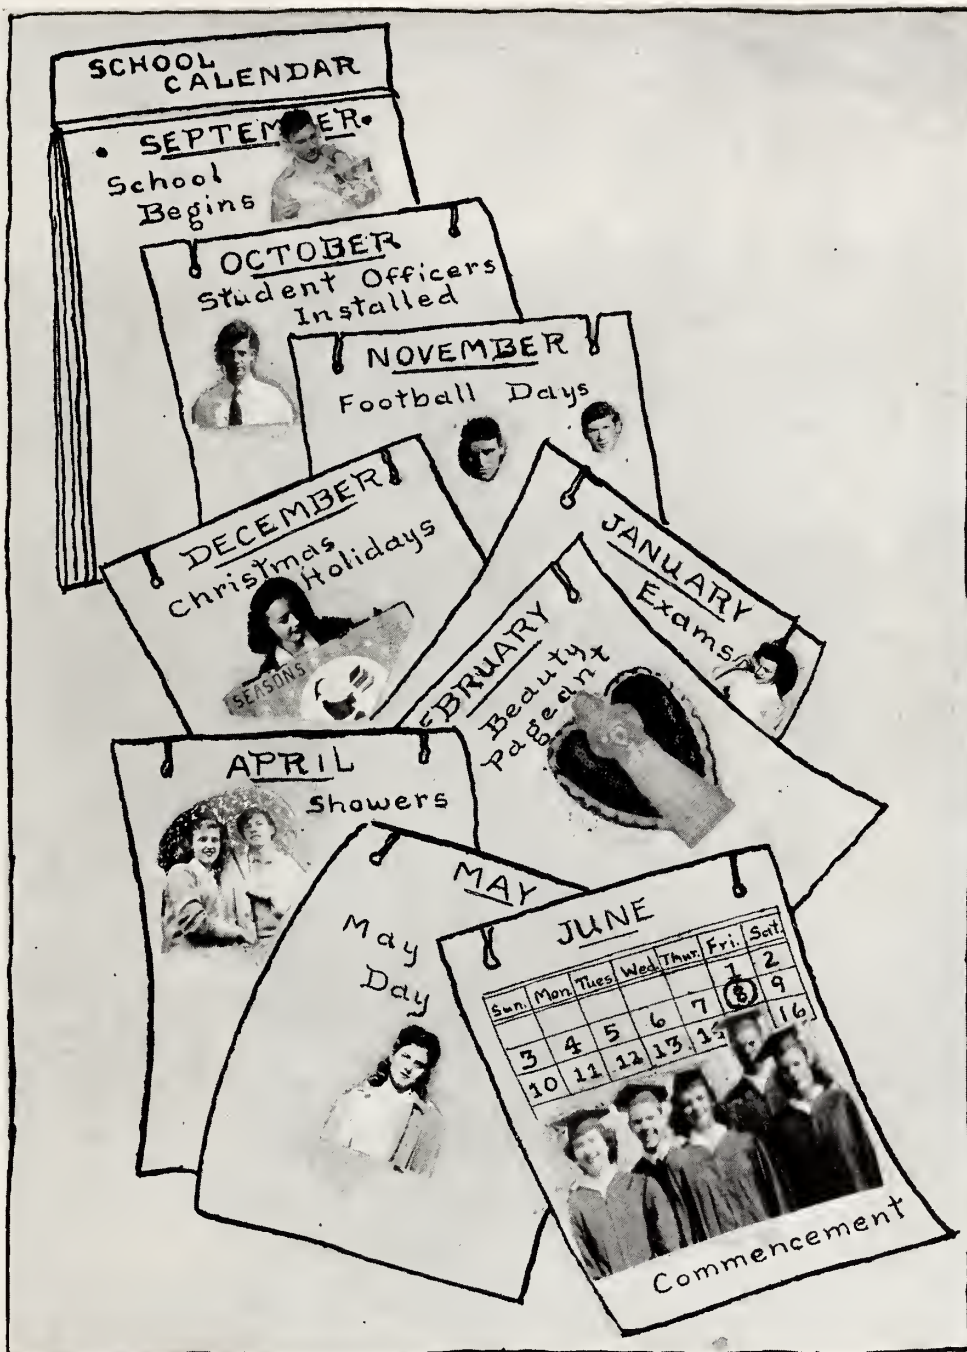 SCHOOL
CALENDAR
SEPTEMBER
School
Begins
OCTOBER
Student Officers
Installed
NOVEMBER
Football Days
DECEMBER
Christmas
Holidays
SEASONS
JANUARY
Exams
EBRUARY
Beauty
Pageant
APRIL
Showers
MAY
May
Day
JUNE
Sun. Mon. Tues Wed. Thur. Fri. Sat.
1 2
3 4 5 6 7 8 9
10 11 12 13 16
Commencement